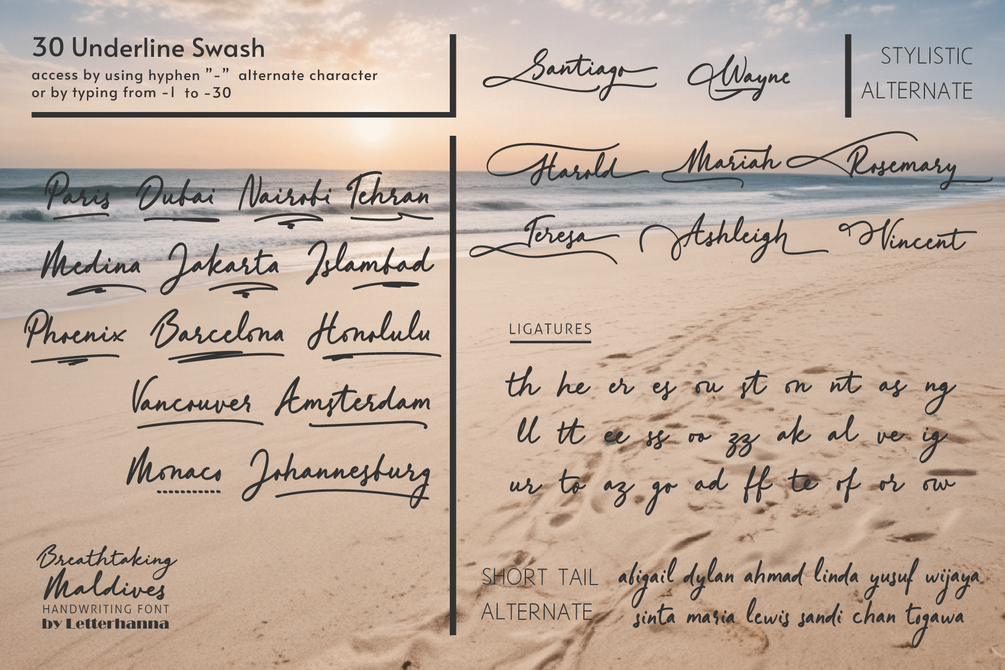 30 Underline Swash
access by using hyphen "-" alternate character
or by typing from -1 to -30
Paris Dubai Nairobi Tehran
Medina Jakarta Islambad
Phoenix Barcelona Honolulu
Vancouver Amsterdam
Monaco Johannesburg
Breathtaking
Maldives
HANDWRITING FONT
by Letterhanna
Santiago Wayne
STYLISTIC
ALTERNATE
Harold Mariah Rosemary
Teresa Ashleigh Vincent
LIGATURES
th he er es ou st on nt as ng
ll tt ee ss oo zz ak al ve ig
ur to az go ad ff te of or ow
SHORT TAIL
ALTERNATE
abigail dylan ahmad linda yusuf wijaya
sinta maria lewis sandi chan togawa